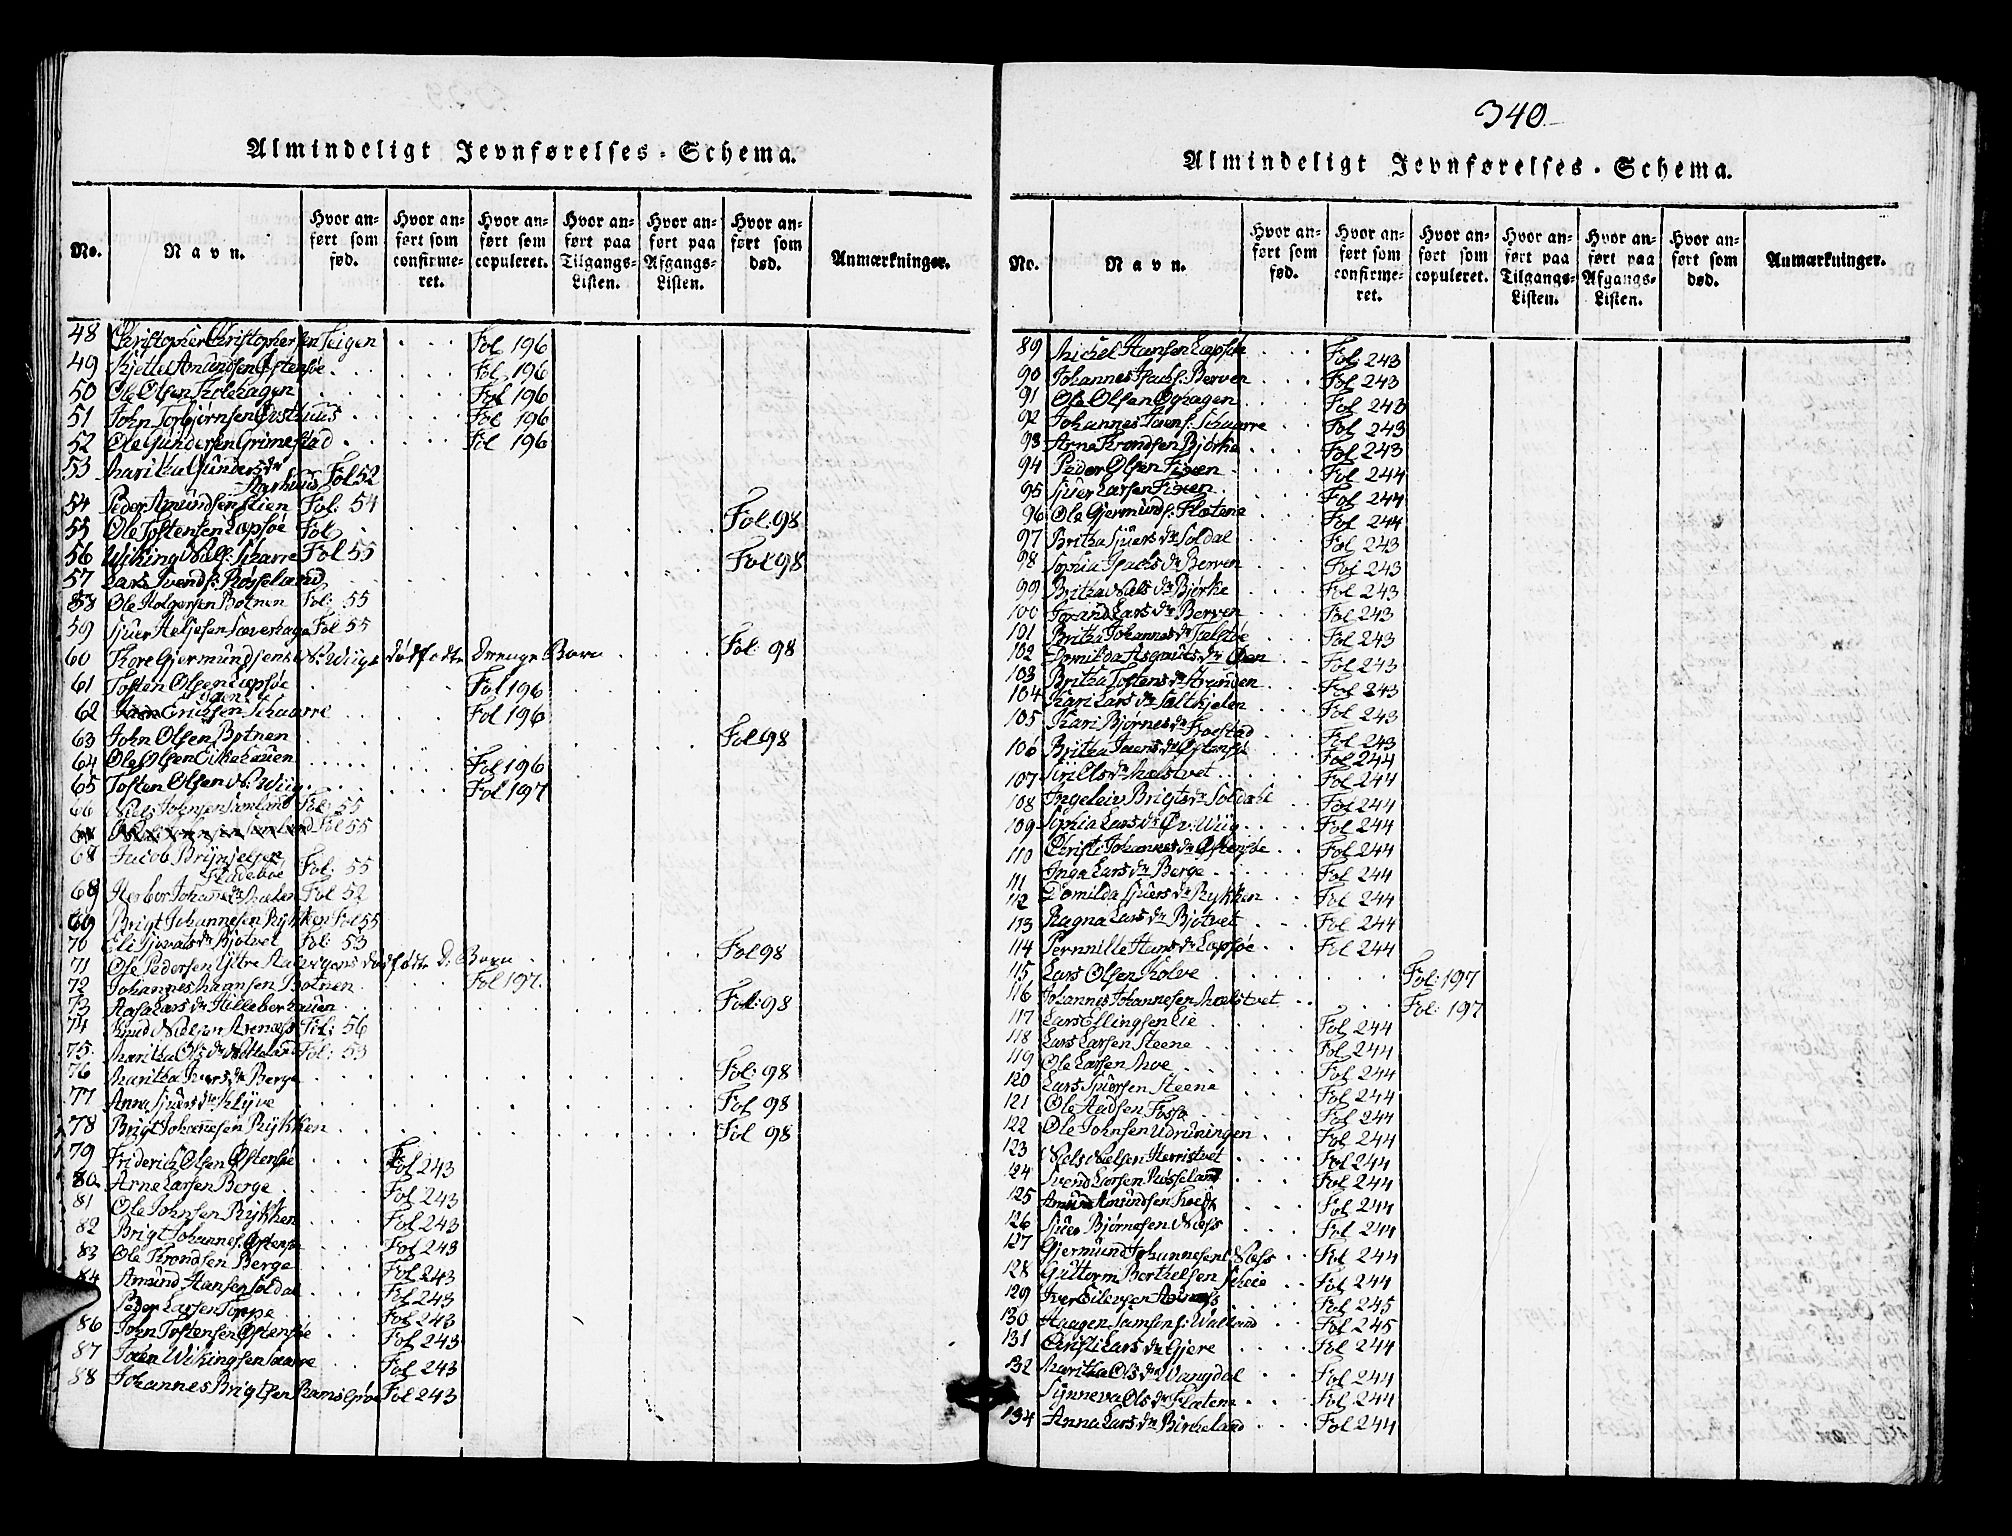 340.
Almindeligt Jevnførelses-Schema.
No.
Navn.
Hvor anført som fød.
Hvor anført som confirmeret.
Hvor anført som copuleret.
Hvor anført paa Tilgangs-Listen.
Hvor anført paa Afgangs-Listen.
Hvor anført som død.
Anmærkninger.
48 Christopher Christophersen Teigen Fol 196
49 Kjettel Amundsen Østensøe Fol. 196
50 Ole Olsen Kolehagen Fol 196
51 John Torbjørnsen Østhuus Fol 196
52 Ole Gundersen Grimestad Fol 196
53 Maritha Gundersdr
Aarhuus Fol 52
54 Peder Amundsen Fol: 54
55 Ole Tostensen Lepsøe Fol Fol: 98
56 Wiking Skaarre Fol 55 Fol 98
57 Lars Svends: Røyseland
58 Ole Holgersen Botnen Fol: 55
59 Sjuer Heljesen Sæverhagen Fol 55
60 Tore Gjermundsens N: Wiigs dødfødte Drenge Barn Fol: 98
61 Tosten Olsen Lepsøe Fol 196
62 Ericksen Skaarre Fol 196
63 John Olsen Botnen Fol 98
64 Ole Olsen Eikehauen Fol 196
65 Tosten Olsen N: Wiig Fol 197
66 Niels Johnsen Fol: 55
Fol 55
68 Jacob Brynjelsen
Fladebøe Fol: 55
68 Herbor Johannesdr Fol 52
69 Brigt Johannesen Rykken Fol 55
70 Eli Sjovatsdr Bjotvet Fol: 53
71 Ole Pedersen Ytre Aalvigens dødfødte D: Barn Fol 98
72 Johannes Botnen Fol 197.
73 Aasa Larsdr Hilleberhauen Fol: 98
74 Knud Fol: 56
75. Maritha Olsdr Fol: 53
76 Maritha Iversdr Berge Fol: 98
77 Anna Sjuersdr Klyve Fol 98
78 Brigt Johannesen Rykken Fol 98
79 Friderich Olsen Østensøe Fol 243
80 Arne Larsen Berge Fol 243
81 Ole Johnsen Rykken Fol 243
82 Brigt Johannes: Østensøe Fol 243
83 Ole Trondsen Berge Fol 243
84 Amund Hansen Soldal Fol 243
Peder Larsen Torpe Fol 243
86 John Tostensen Østensøe Fol 243
87 Joen Wikingsen Fol 243
88 Johannes Brigtsen Ramsgrøe Fol 243
Almindeligt Jevnførelses-Schema.
No.
Navn.
Hvor anført som fød.
Hvor anført som confirmeret.
Hvor anført som copuleret.
Hvor anført paa Tilgangs-Listen.
Hvor anført paa Afgangs-Listen.
Hvor anført som død.
Anmærkninger.
89 Michel Hansen Lepsøe Fol 243
90 Johannes Isachs: Berven Fol 243
91 Ole Olsen Øyhagen Fol 243
92 Johannes Joens: Skaarre Fol 243
93 Arne Trondsen Bjørke Fol 243
94 Peder Olsen Fixen Fol 244
95 Sjuer Larsen Fixen Fol 244
96 Ole Gjermunds: Flætene Fol 244
97 Britha Sjuersdr Soldal Fol 243
98 Sophia Isachsdr Berven Fol 243
99 Britha Nielsdr Bjørke Fol 243
100 Jorand Larsdr Berven Fol 243
101 Britha Johannesdr Fol 243
102 Domilda Asgautsdr Øen Fol 243
103 Britha Tostensdr Stranden Fol 243
104 Kari Larsdr Fol 243
105 Kari Bjørnesdr Fol 243
106 Britha Joensdr Østensøe Fol 244
107 Siri Olsdr Mælstvet Fol 244
108 Ingeleiv Brigtsdr Soldahl Fol 244
109 Sophia Larsdr Øv: Wiig Fol 244
110 Christi Johannesdr Østensøe Fol 244
111 Inga Larsdr Berge Fol 244
112 Domilda Sjuersdr Rykken Fol 244
113 Ragna Larsdr Bjotvet Fol 244
114 Pernnille Hansdr Lepsøe Fol 244
115 Lars Olsen Kolve Fol: 197
116 Johannes Johannesen Mælstvet Fol: 197
117 Lars Ellingsen Lie Fol 244
118 Lars Larsen Steene Fol 244
119 Ole Larsen Moe Fol 244
120 Lars Sjursen Steene Fol 244
121 Ole Aadsen Fosse Fol 244
122 Ole Johnsen Udruningen Fol 244
123 Niels Nielsen Herristvet Fol 244
124 Svend Larsen Røsseland Fol 244
125 Amund Amundsen Fol 244
126 Sjuer Bjørnesen Næss Fol 244
127 Gjermund Johannesen Næss Fol 244
128 Guttorm Berthelsen Skeie Fol 244
129 Iver Eilevsen Fol 245
130 Haagen Samsons: Walland Fol 245
131 Christi Larsdr Gjere Fol 244
132 Maritha Olsdr Wangdal Fol 244
Synneva Olsdr Flætene Fol 244
134 Anna Larsdr Birkeland Fol 244